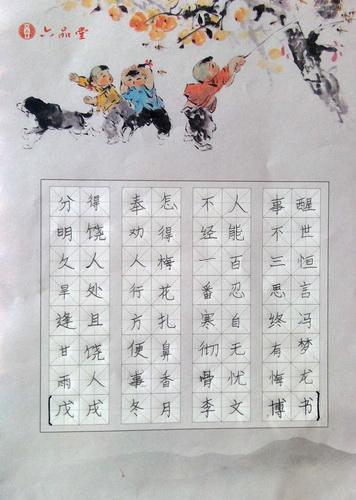 六品堂
醒世恒言冯梦龙书
事不三思终有悔博
人能百忍自无忧文
不经一番寒彻骨李
怎得梅花扎鼻香月
奉劝人行方便事冬
得饶人处且饶人戌
分明久旱逢甘雨戊